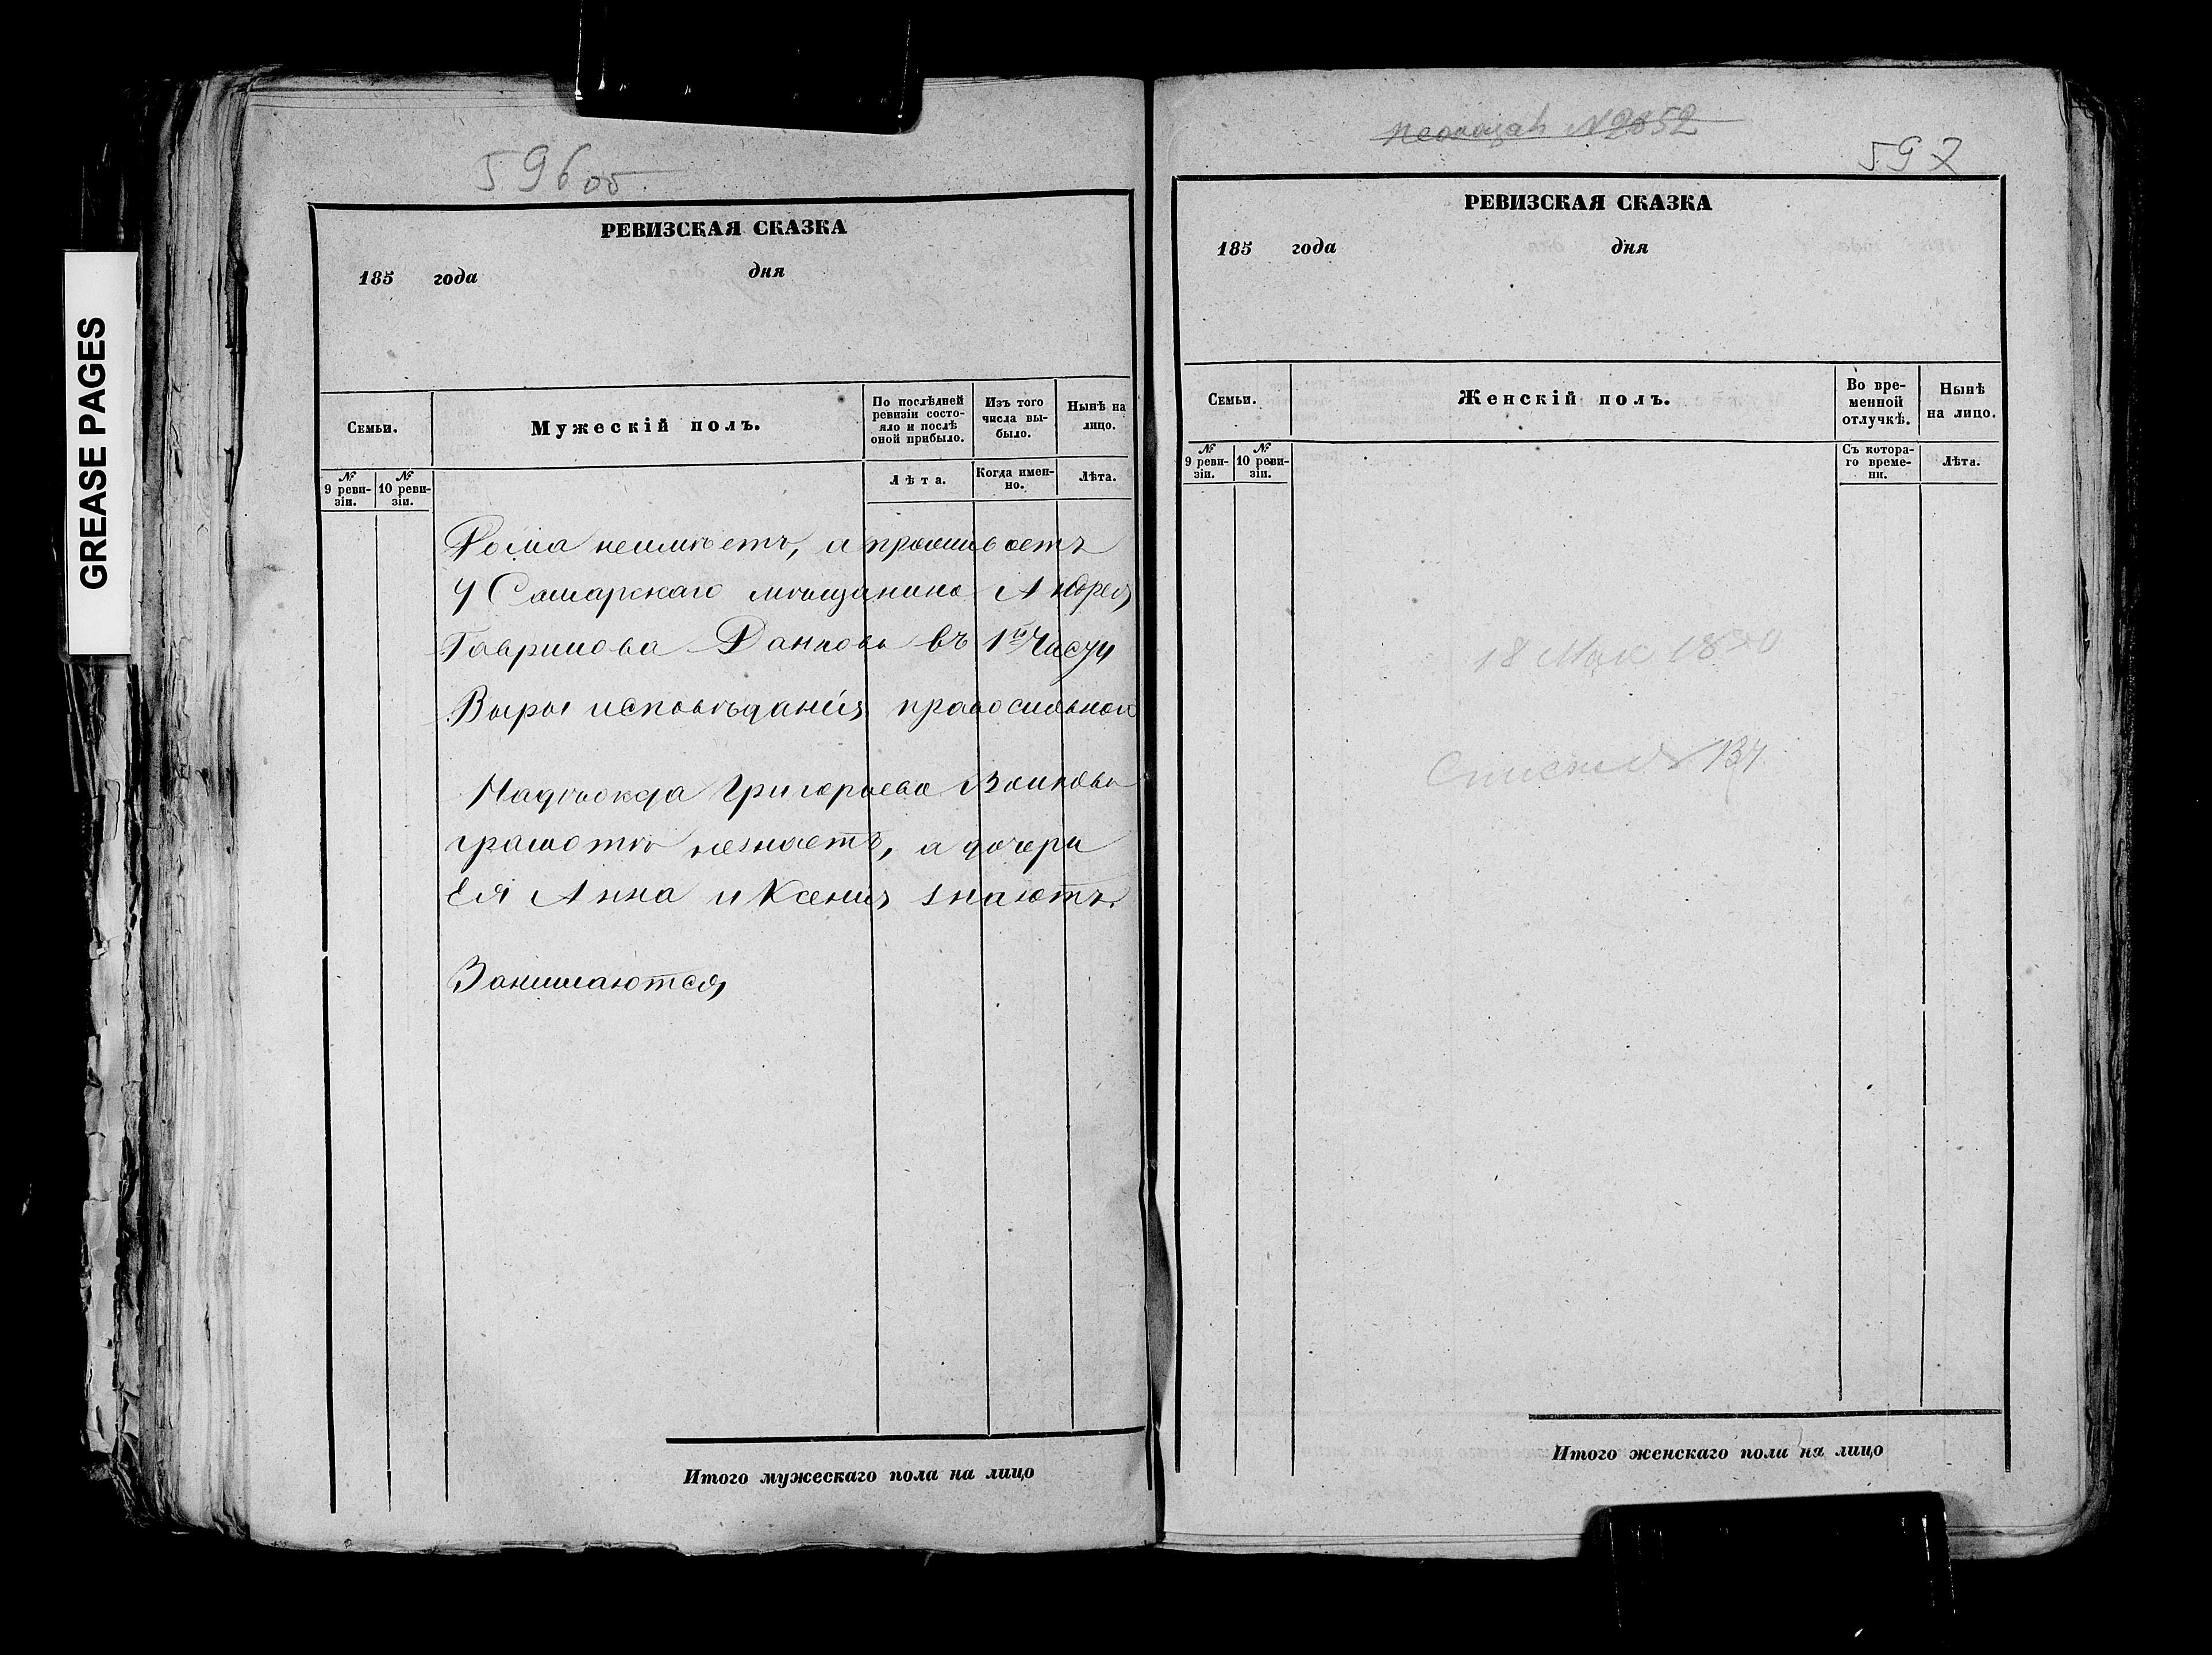 GREASE PAGES
596 об
РЕВИЗСКАЯ СКАЗКА
185 года дня
Семьи.
Мужескій полъ.
По послѣдней ревизіи состояло и послѣ оной прибыло.
Изъ того числа выбыло.
Нынѣ на лицо.
№ 9 ревизіи.
№ 10 ревизіи.
Лѣта.
Когда именно.
Лѣта.
Дома неимѣетъ, а проживаетъ
у Самарскаго мѣщанина Андрея
Гаврилова Данкова въ 1й Части
Вѣры исповѣданія православной
Надѣжда Григорьева
грамотѣ незнаетъ, а дочери
Ея Анна и Ксения знаютъ
Занимаются
Итого мужескаго пола на лицо
№ 2852
597
РЕВИЗСКАЯ СКАЗКА
185 года дня
Семьи.
Женскій полъ.
Во временной отлучкѣ.
Нынѣ на лицо.
№ 9 ревизіи.
№ 10 ревизіи.
Съ котораго времени.
Лѣта.
Итого женскаго пола на лицо